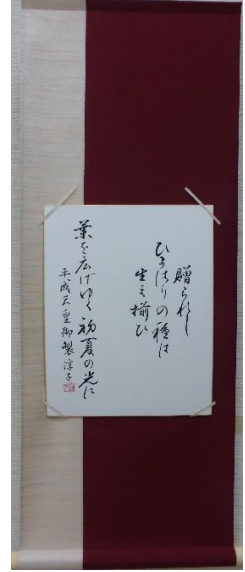 贈られし
ひまはりの種は
生え揃ひ
葉を広げゆく初夏の光に
平成天皇御製淳子